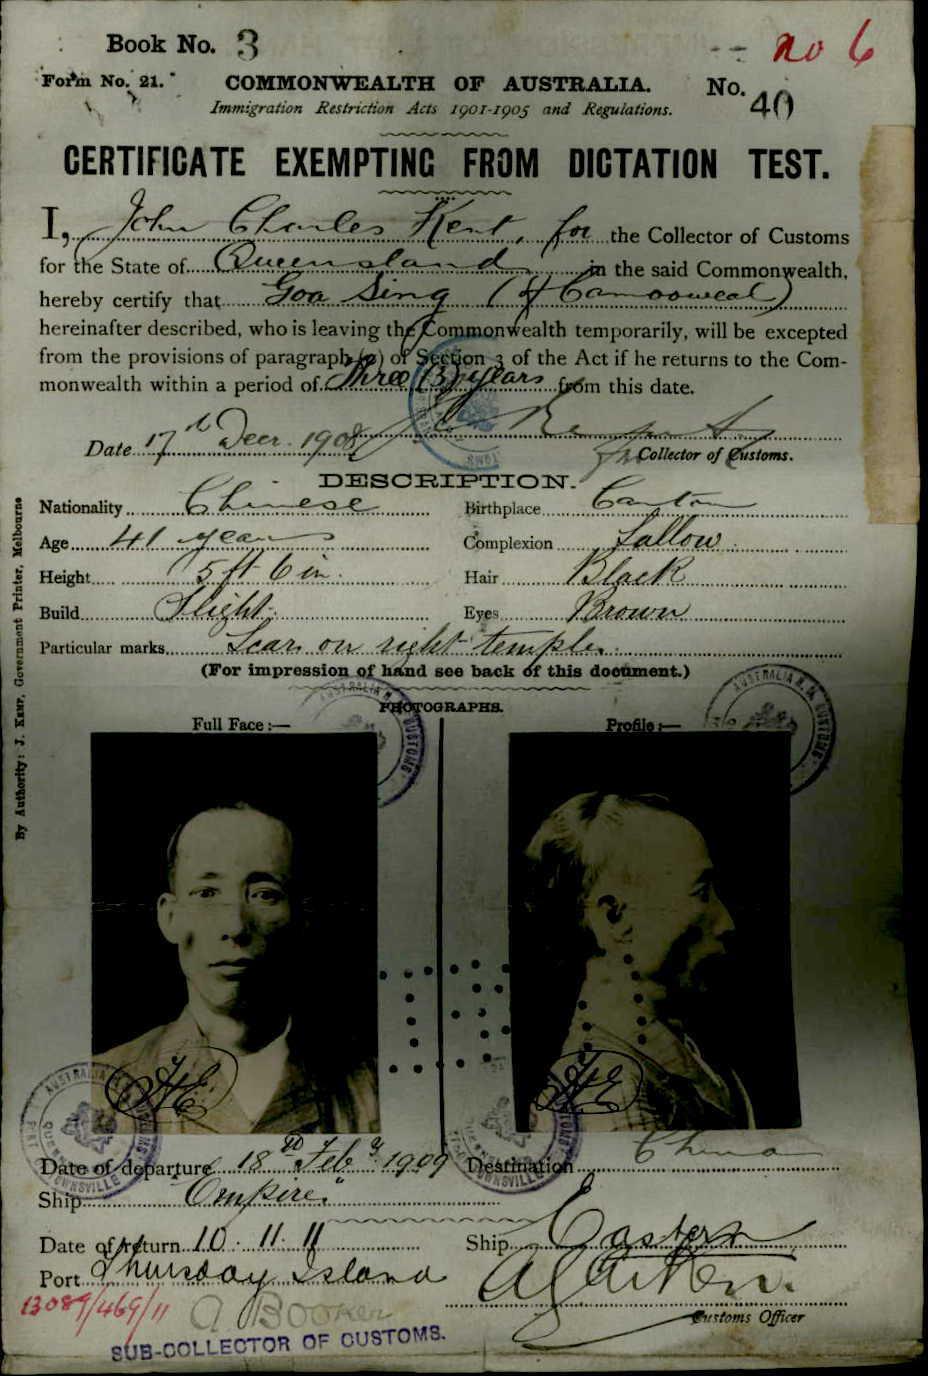 Book No. 3
no 6
Form No. 21.
COMMONWEALTH OF AUSTRALIA.
No. 40
Immigration Restriction Acts 1901-1905 and Regulations.
CERTIFICATE EXEMPTING FROM DICTATION TEST.
I, John Charles Kent, for the Collector of Customs
for the State of Queensland in the said Commonwealth,
hereby certify that Goa Sing (of Camooweal)
hereinafter described, who is leaving the Commonwealth temporarily, will be excepted
from the provisions of paragraph (a) of Section 3 of the Act if he returns to the Com-
monwealth within a period of Three (3) years from this date.
Date 17th Decr. 1908
Collector of Customs.
DESCRIPTION.
Nationality Chinese Birthplace Canton
Age 41 years Complexion Sallow
Height 5 ft 6 in. Hair Black
Build Slight Eyes Brown
Particular marks Scar on right temple.
(For impression of hand see back of this document.)
PHOTOGRAPHS.
Full Face :— Profile :—
By Authority: J. Kemp, Government Printer, Melbourne
Date of departure 18th Feby 1909 Destination China
Ship "Empire"
Date of return 10.11.11 Ship Eastern
Port Thursday Island
13089/469/11
A Booker
Customs Officer
SUB-COLLECTOR OF CUSTOMS.